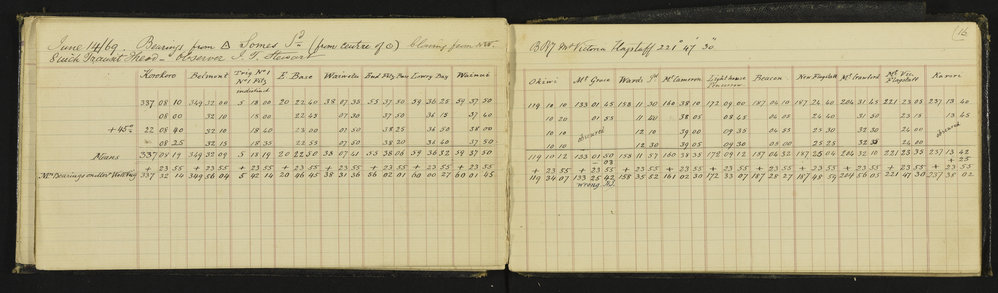 June 14/69. Bearings from Δ Somes Id (from centre of ⊙) blowing from NW.
5 inch Transit Theod - observer J. T. Stewart
Korokoro Belmont Trig No 1 E. Base Wainuiu End Pitz Bay Lowry Bay Wainui
No 1 Pitz
337 08 10 349 32 00 5 18 00 20 22 40 38 07 35 55 37 50 59 36 25 59 37 50
08 00 32 10 18 00 22 45 07 30 37 50 36 15 37 40
+45° 22 08 40 32 10 18 40 23 00 07 50 38 25 36 50 38 00
08 25 32 15 18 35 22 55 07 50 38 20 36 40 37 50
Means 337 08 19 349 32 09 5 18 19 20 22 50 38 07 41 55 38 06 59 36 32 59 37 50
+ 23 55 + 23 55 + 23 55 + 23 55 + 23 55 + 23 55 + 23 55 + 23 55
337 32 14 349 56 04 5 42 14 20 46 45 38 31 36 56 02 01 60 00 27 60 01 45
16
Mt Victoria Flagstaff 221° 47' 30"
Okiwi Mt Grace Wards Id Mt Cameron Light house Beacon New Flagstaff Mt Crawford Mt Vic. Karori
Pencarrow Flagstaff
119 10 10 133 01 45 158 11 30 160 38 10 172 09 00 187 04 10 187 24 40 204 31 45 221 23 05 237 13 40
10 20 01 55 11 40 38 05 08 45 04 05 24 40 31 50 23 15
10 10 obscured 12 10 39 00 09 35 04 55 25 30 32 30 24 00 obscured
10 10 12 30 39 05 09 30 05 00 25 25 32 35 24 00
119 10 12 133 01 50 158 11 57 160 38 35 172 09 12 187 04 32 187 25 04 204 32 10 221 23 35 237 13 42
- 03 + 25
+ 23 55 + 23 55 + 23 55 + 23 55 + 23 55 + 23 55 + 23 55 + 23 55 + 23 55 + 23 55
119 34 07 133 25 42 158 35 52 161 02 30 172 33 07 187 28 27 187 48 59 204 56 05 221 47 30 237 38 02
wrong